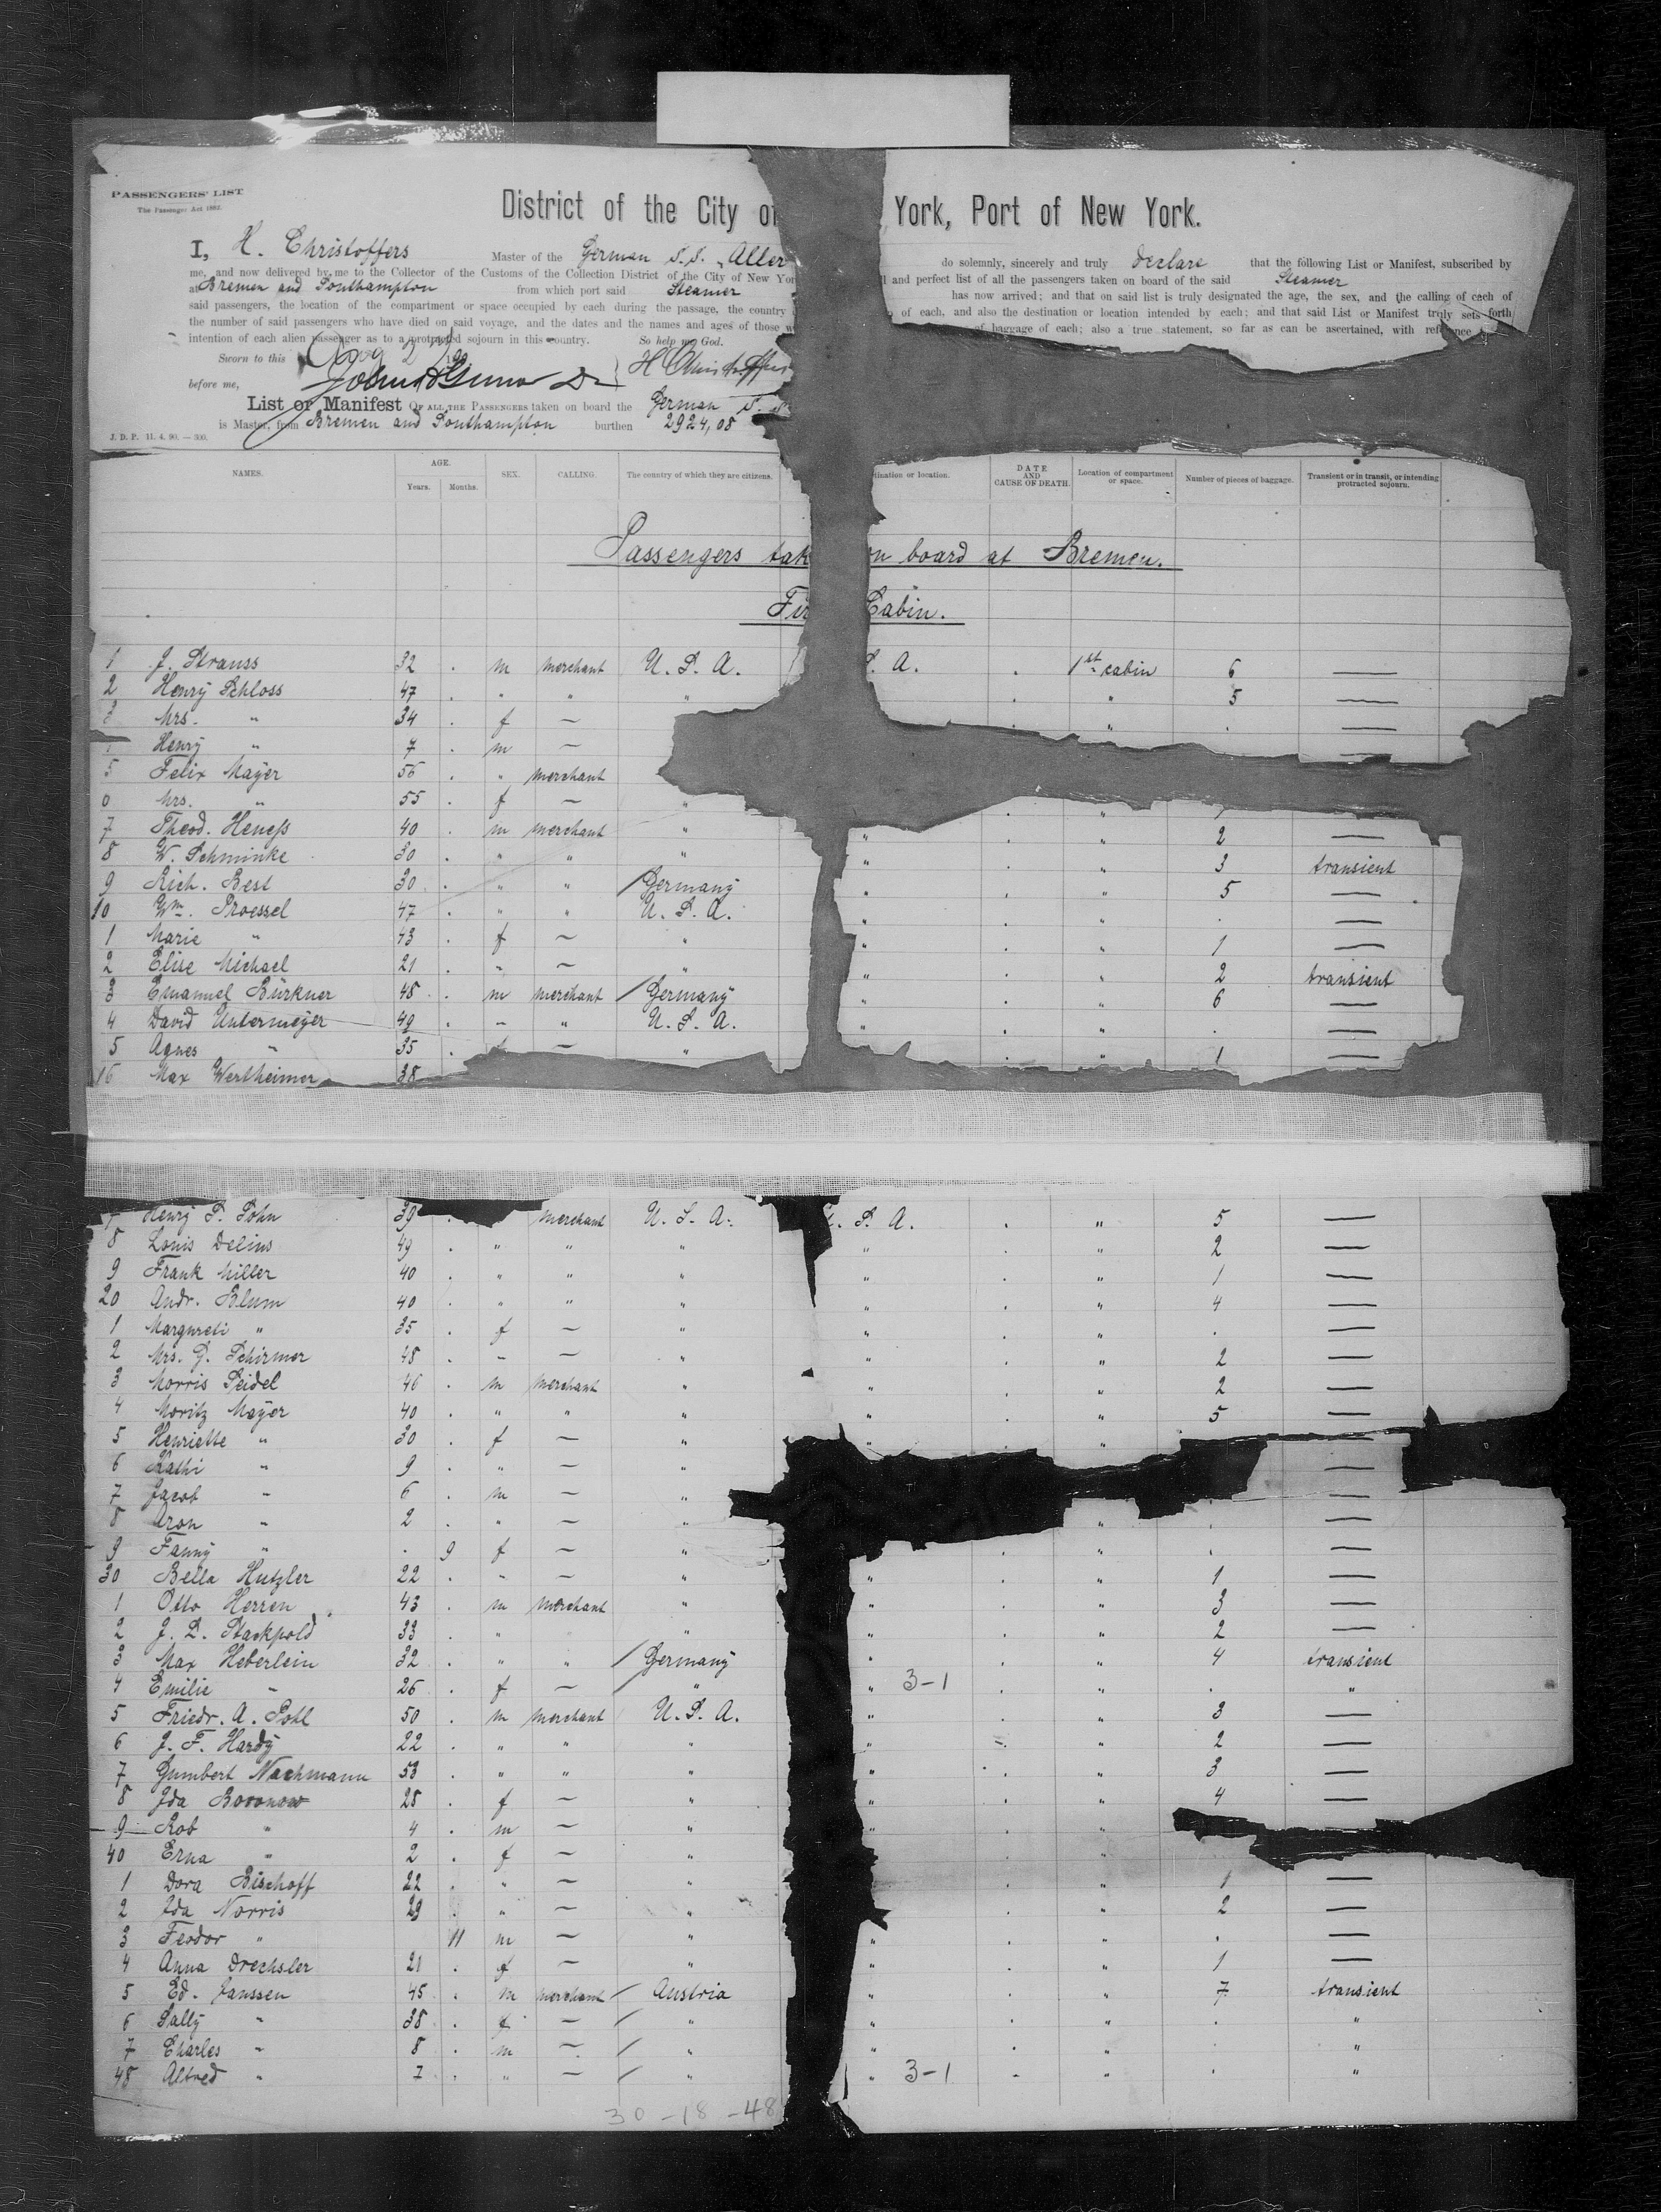 PASSENGERS' LIST.
The Passenger Act 1882.
District of the City of York, Port of New York.
I, H. Christoffers Master of the German S.S. "Aller do solemnly, sincerely and truly declare that the following List or Manifest, subscribed by
me, and now delivered by me to the Collector of the Customs of the Collection District of the City of New Yor and perfect list of all the passengers taken on board of the said Steamer
at Bremen and Southampton from which port said Steamer has now arrived; and that on said list is truly designated the age, the sex, and the calling of each of
said passengers, the location of the compartment or space occupied by each during the passage, the country of each, and also the destination or location intended by each; and that said List or Manifest truly sets forth
the number of said passengers who have died on said voyage, and the dates and the names and ages of those of baggage of each; also a true statement, so far as can be ascertained, with
intention of each alien passenger as to a protracted sojourn in this country. So help me God.
Sworn to this Aug 2
before me,
List or Manifest OF ALL THE PASSENGERS taken on board the German S.
is Master, from Bremen and Southampton burthen 2924,08
J. D. P. 11. 4. 90. — 300.
NAMES. AGE. Years. Months. SEX. CALLING. The country of which they are citizens. tination or location. DATE AND CAUSE OF DEATH. Location of compartment or space. Number of pieces of baggage. Transient or in transit, or intending protracted sojourn.
Passengers tak on board at Bremen.
Fir Cabin.
1 J. Strauss 32 . m merchant U. S. A. S. A. . 1st cabin 6 —
2 Henry Schloss 47 . " " " . " 5 —
3 Mrs. " 34 . f — . " . —
Henry " 7 . m — —
5 Felix Mayer 56 . " merchant
Mrs. " 55 . f — " . "
7 Theod. Heneß 40 . m merchant " " . " 2 —
8 W. Schminke 30 . " " " " . " 3 transient
9 Rich. Best 30 . " " / Germany " . " 5 —
10 Wm. Proessel 47 . " " U. S. A. . " . —
1 Marie " 43 . f — " " . " 1 —
2 Elise Michael 21 . " — " " . " 2 transient
3 Emanuel Bürkner 48 . m merchant / Germany " . " 6 —
4 David Untermeyer 49 . " " U. S. A. " . " . —
5 Agnes " 35 . — " . " 1 —
16 Max Wertheimer 38
Henry S. Sohn 39 . merchant U. S. A. S. A. . " 5 —
8 Louis Delius 49 . " " " " . " 2 —
9 Frank Miller 40 . " " " " . " 1 —
20 Andr. Blum 40 . " " " " . " 4 —
1 Margureti " 35 . f — " " . " . —
2 Mrs. G. Schirmer 48 . " — " " . " 2 —
3 Morris Seidel 46 . m merchant " " . " 2 —
4 Moritz Mayer 40 . " " " " . " 5 —
5 Henriette " 30 . f — " " . " —
6 Kathi " 9 . " — " —
7 Jacob " 6 . m — " —
8 Aron " 2 . " — " " . —
9 Fanny " . 9 f — " . " . —
30 Bella Hutzler 22 . " — " " . " 1 —
1 Otto Herren 43 . m merchant " " . " 3 —
2 J. D. Stackpold 33 . " " " . " 2 —
3 Max Heberlein 32 . " " / Germany " . " 4 transient
4 Emilie " 26 . f — / " " 3-1 . " . "
5 Friedr. A. Pohl 50 . m merchant U. S. A. " . " 3 —
6 J. F. Hardy 22 . " " " " . " 2 —
7 Gumbert Nachmann 53 . " " " " . " 3 —
8 Ida Boronow 28 . f — " " . " 4 —
9 Rob " 4 . m — " " . "
40 Erna " 2 . f — " . "
1 Dora Bischoff 22 . " — " . " 1 —
2 Ida Norris 29 . " — " . " 2 —
3 Feodor " 11 m — " " . " . —
4 Anna Drechsler 21 . f — " " . " 1 —
5 Ed. Janssen 45 . m merchant / Austria " . " 7 transient
6 Sally " 38 . f — / " " . " . "
7 Charles " 8 . m — / " " . " . "
48 Alfred " 7 . " — / " " 3-1 . " . "
30 -18 -48